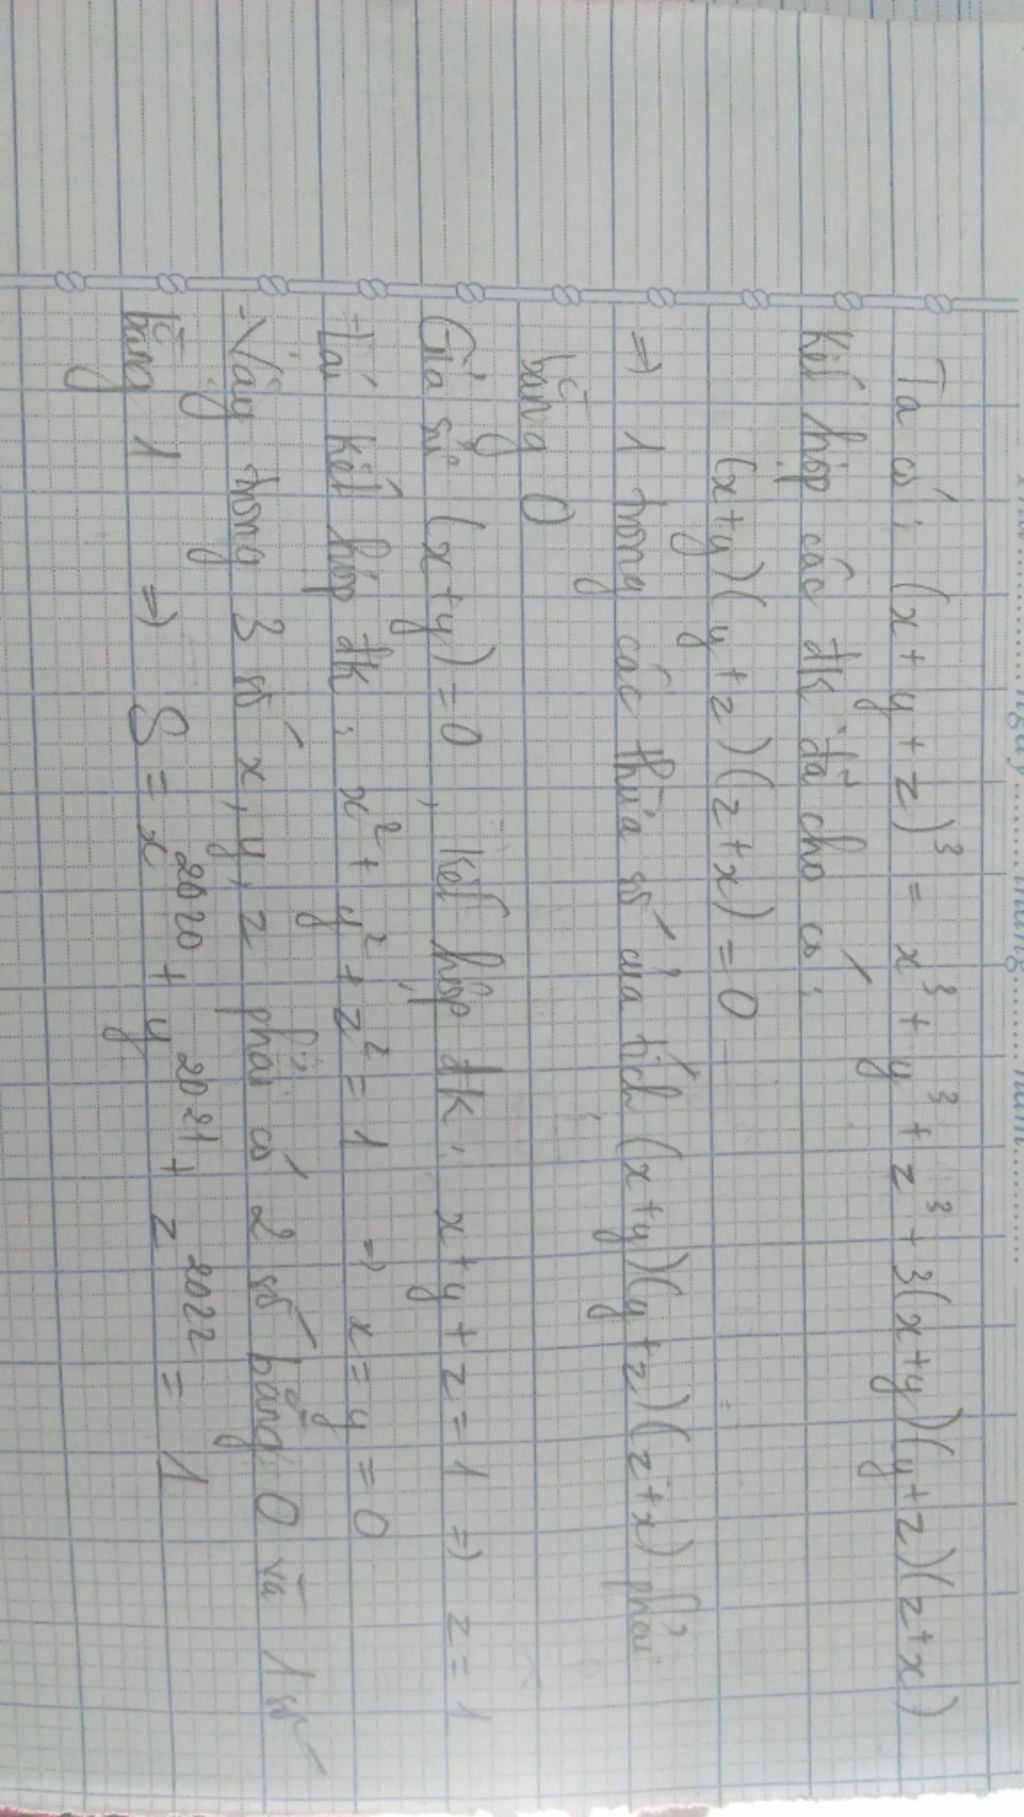 ngày.......tháng.......năm.......
Ta có: (x+y+z)³ = x³+y³+z³+3(x+y)(y+z)(z+x)
Kết hợp các đk đã cho có:
(x+y)(y+z)(z+x)=0
=> 1 trong các thừa số của tích (x+y)(y+z)(z+x) phải
bằng 0
Giả sử (x+y)=0, kết hợp đk: x+y+z=1 => z=1
Lại kết hợp đk: x²+y²+z²=1 => x=y=0
-Vậy trong 3 số x,y,z phải có 2 số bằng 0 và 1 số
bằng 1 => S=x²⁰²⁰+y²⁰²¹+z²⁰²²=1